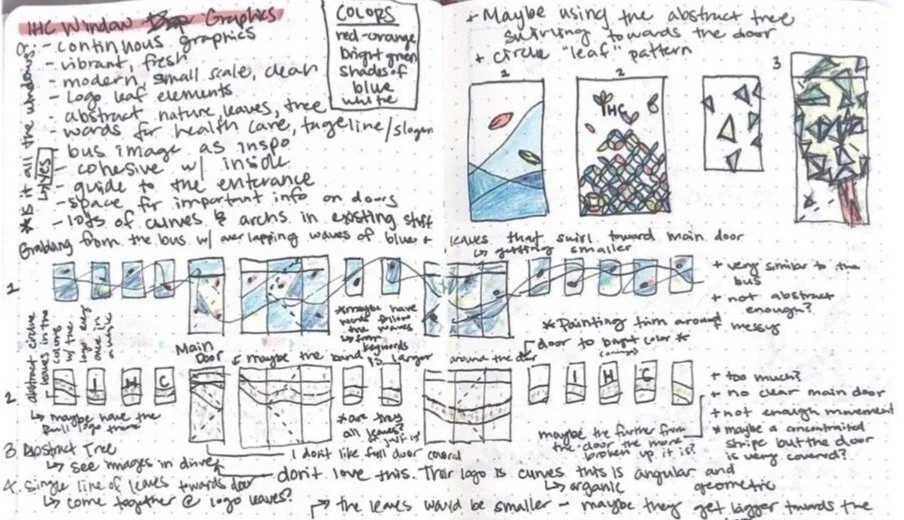 IHC Window Graphics
- continuous graphics
- vibrant, fresh
- modern, small scale, clean
- logo leaf elements
- abstract nature, leaves, tree
- words for health care, tageline/slogen
- bus image as inspo
- cohesive w/ inside
- guide to the enterance
- space for important info on doors
- lots of curves & archs in existing stuff
*Is it all the windows?
YES
COLORS
red-orange
bright green
shades of
blue
white
+ Maybe using the abstract tree
swirling towards the door
+ circle "leaf" pattern
1
2
IHC
3
Grabbing from the bus w/ overlapping waves of blue + leaves that swirl toward main door
↳ getting smaller
1
+ very similar to the
bus
+ not abstract
enough?
*maybe have
words follow
the waves
↳ from
keywords
*Painting trim around messy
door to be a part color *
abstract circle
leaves in the
colors
w/ the
logo every
once in
a while
Main
Door
maybe the band is larger around the door
2
I H C
I H C
↳ maybe have the
full logo there
*are they
all leaves?
or just
maybe the further from
the door the more
broken up it is?
+ too much?
+ no clear main door
+ not enough movement
* maybe a concentrated
stripe but the door
is very covered?
I dont like full door covered
3. Abstract Tree
↳ see images in drive
don't love this. Their logo is curves this is angular and
↳ organic geometric
4. single line of leaves towards door
↳ come together @ logo leaves?
↱ the leaves would be smaller - maybe they get bigger towards the